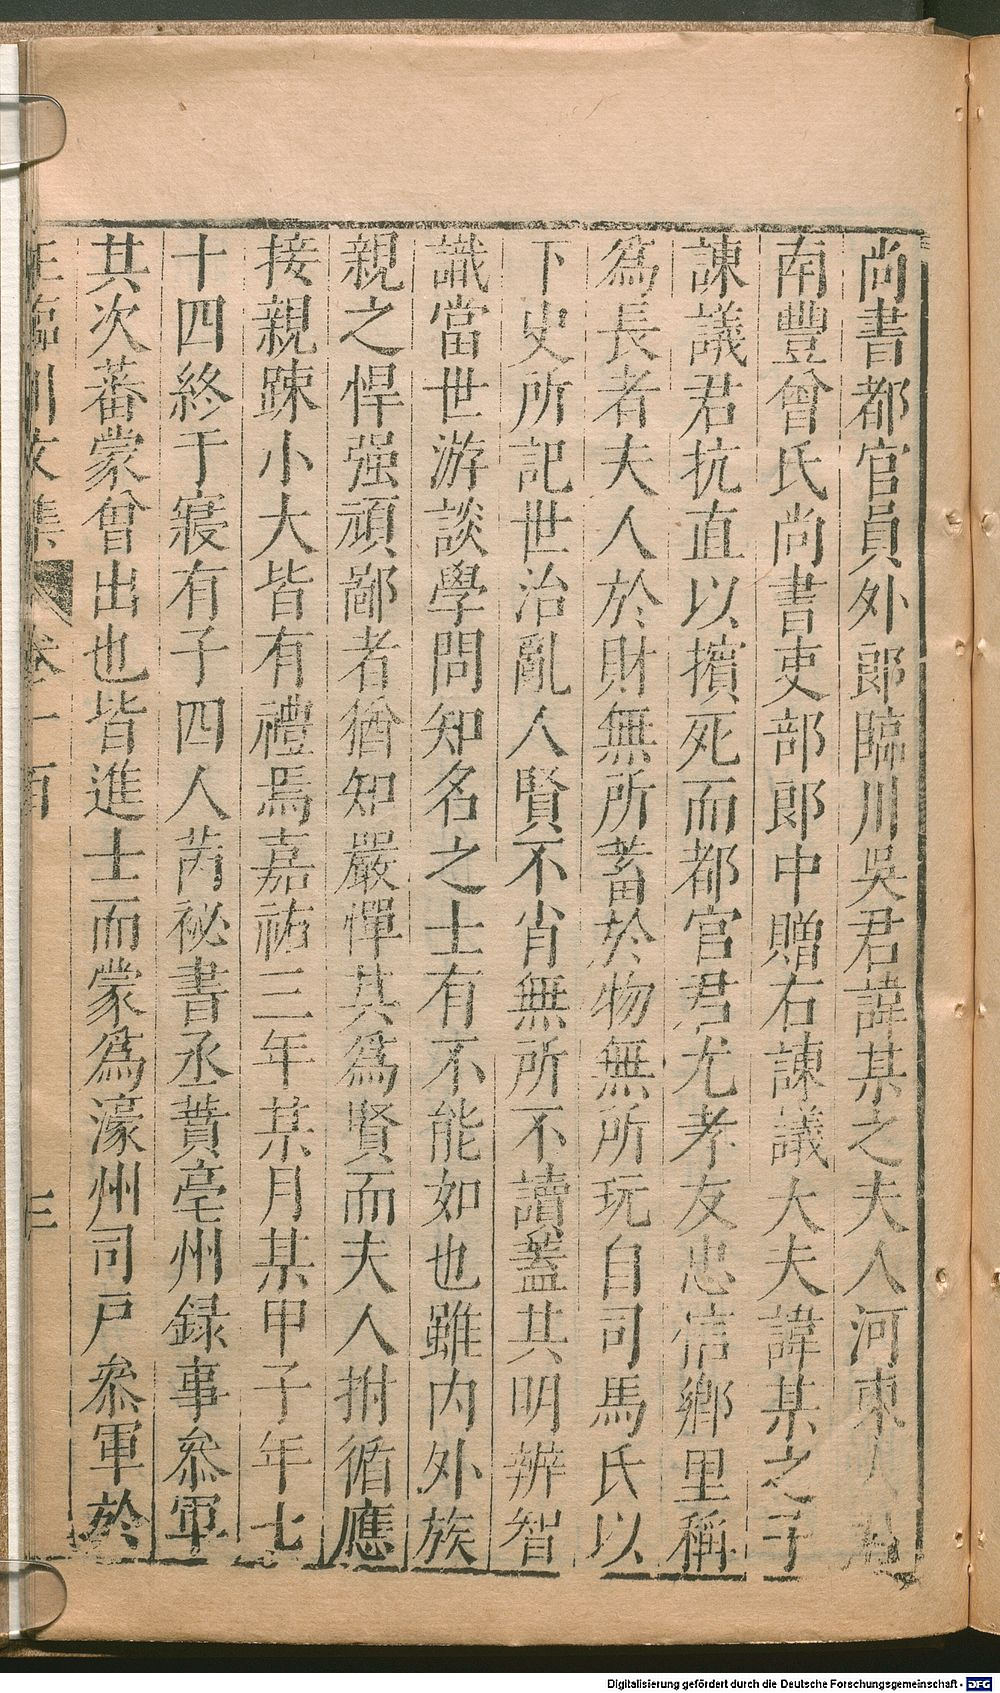 尚書都官員外郎臨川吳君諱某之夫人河東
南豐曾氏尚書吏部郎中贈右諫議大夫諱某之子
諫議君抗直以擯死而都官君尤孝友忠信鄉里稱
爲長者夫人於財無所蓄於物無所玩自司馬氏以
下史所記世治亂人賢不肖無所不讀蓋其明辨智
識當世游談學問知名之士有不能如也雖内外族
親之悍强頑鄙者猶知嚴憚其爲賢而夫人拊循應
接親踈小大皆有禮焉嘉祐三年某月某甲子年七
十四終于寢有子四人芮祕書丞蕡亳州録事叅軍
其次蕃蒙曾出也皆進士而蒙爲濠州司戸叅軍於
王臨川文集 卷一百 三
Digitalisierung gefördert durch die Deutsche Forschungsgemeinschaft - DFG